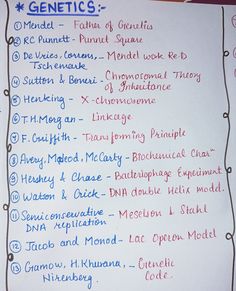 * GENETICS:-
① Mendel - Father of Genetics
② RC Punnett - Punnet Square
③ De Vries, Correns, - Mendel work Re-D
Tschemark
④ Sutton & Boveri - Chromosomal Theory
of Inheritance
⑤ Henking - X-chromosome
⑥ T.H.Morgan - Linkage
⑦ F. Griffith - Transforming Principle
⑧ Avery, McLeod, McCarty - Biochemical Charⁿ
⑨ Hershey & Chase - Bacteriophage Experiment
⑩ Watson & Crick - DNA double Helix model.
⑪ Semiconservative - Meselson & Stahl
DNA replication
⑫ Jacob and Monod - Lac Operon Model
⑬ Gramow, H.Khurana, - Genetic
Nirenberg. Code.